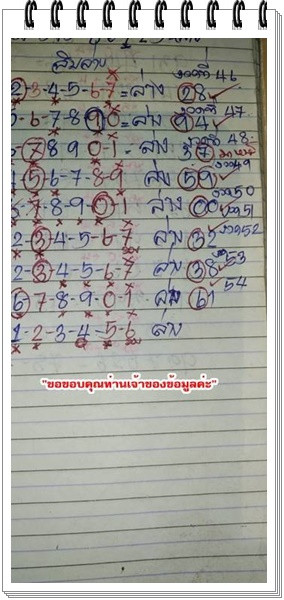 สิบล่าง
2-3-4-5-6-7=ล่าง 28 งวดที่ 46
5-6-7-8-9-0=ล่าง 94 งวดที่ 47
7-8-9-0-1- ล่าง 37 งวดที่ 48
4-5-6-7-8-9 ล่าง 59 งวด 49
6-7-8-9-0-1 ล่าง 00 งวด 50 งวด 51
2-3-4-5-6-7 ล่าง 32 งวด 52
2-3-4-5-6-7 ล่าง 38 53
6-7-8-9-0-1 ล่าง 61 54
1-2-3-4-5-6 ล่าง
"ขอขอบคุณท่านเจ้าของข้อมูลค่ะ"